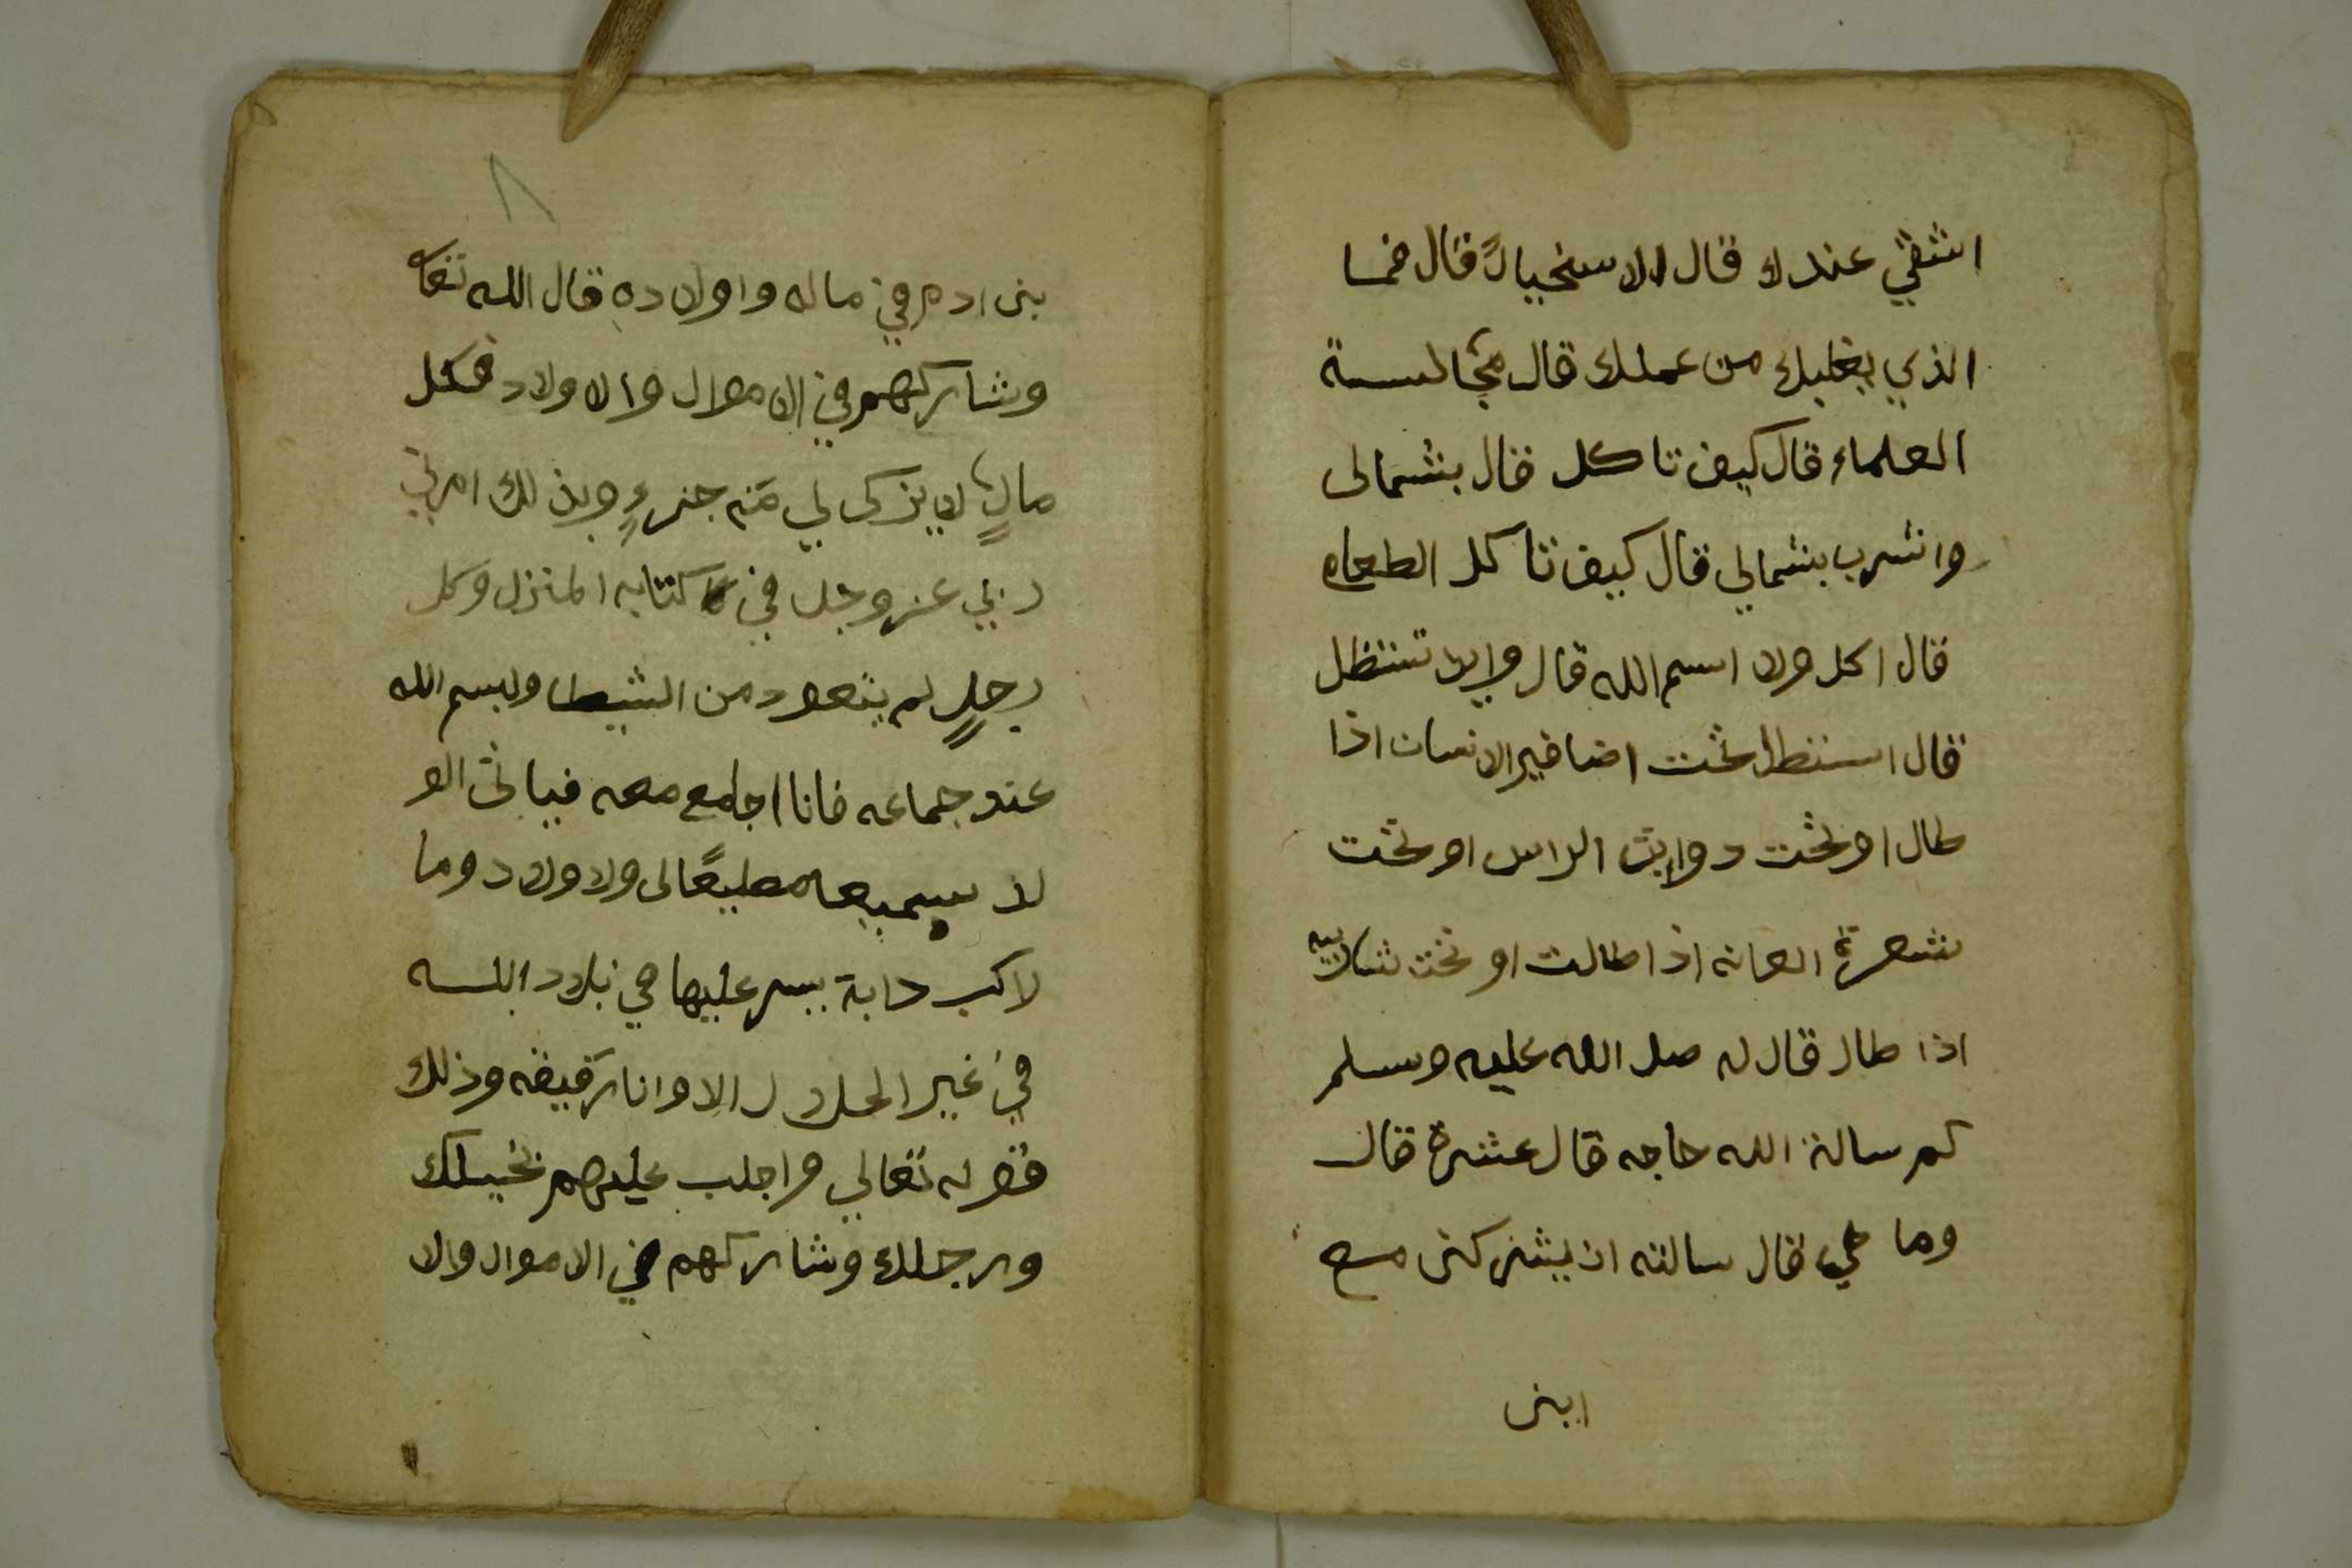 اشقي عندك قال الاسخيا قال فما
الذي يغلبك من عملك قال مجالسة
العلماء قال كيف تاكل قال بشمالى
واشرب بشمالي قال كيف تاكل الطعام
قال اكل ولا اسم الله قال واين تستظل
قال استظل تحت اضافير الانسان اذا
طال او تحت دوايب الراس او تحت
شعرة العانه اذا طالت او تحت شاربيه
اذا طال قال له صلى الله عليه وسلم
كم سالة الله حاجه قال عشرة قال
وما هي قال سالته ان يشركنى مع
ابنى
٨
بنى ادم في ماله واولاده قال الله تعا
وشاركهم في الاموال والاولاد فكل
مالٍ لا يزكى لي منه جزءٍ وبذلك امرني
ربي عز وجل في كتابه المنزل وكل
رجلٍ لم يتعود من الشيطا وبسم الله
عند جماعه فانا اجامع معه فياتى الو
لد سميعا مطيعًا لى ولاولاد وما
راكب دابة يسر عليها في بلاد الله
في غير الحلال الا وانا رفيقه وذلك
قوله تعالي واجلب عليهم بخيلك
ورجلك وشاركهم في الاموال والا